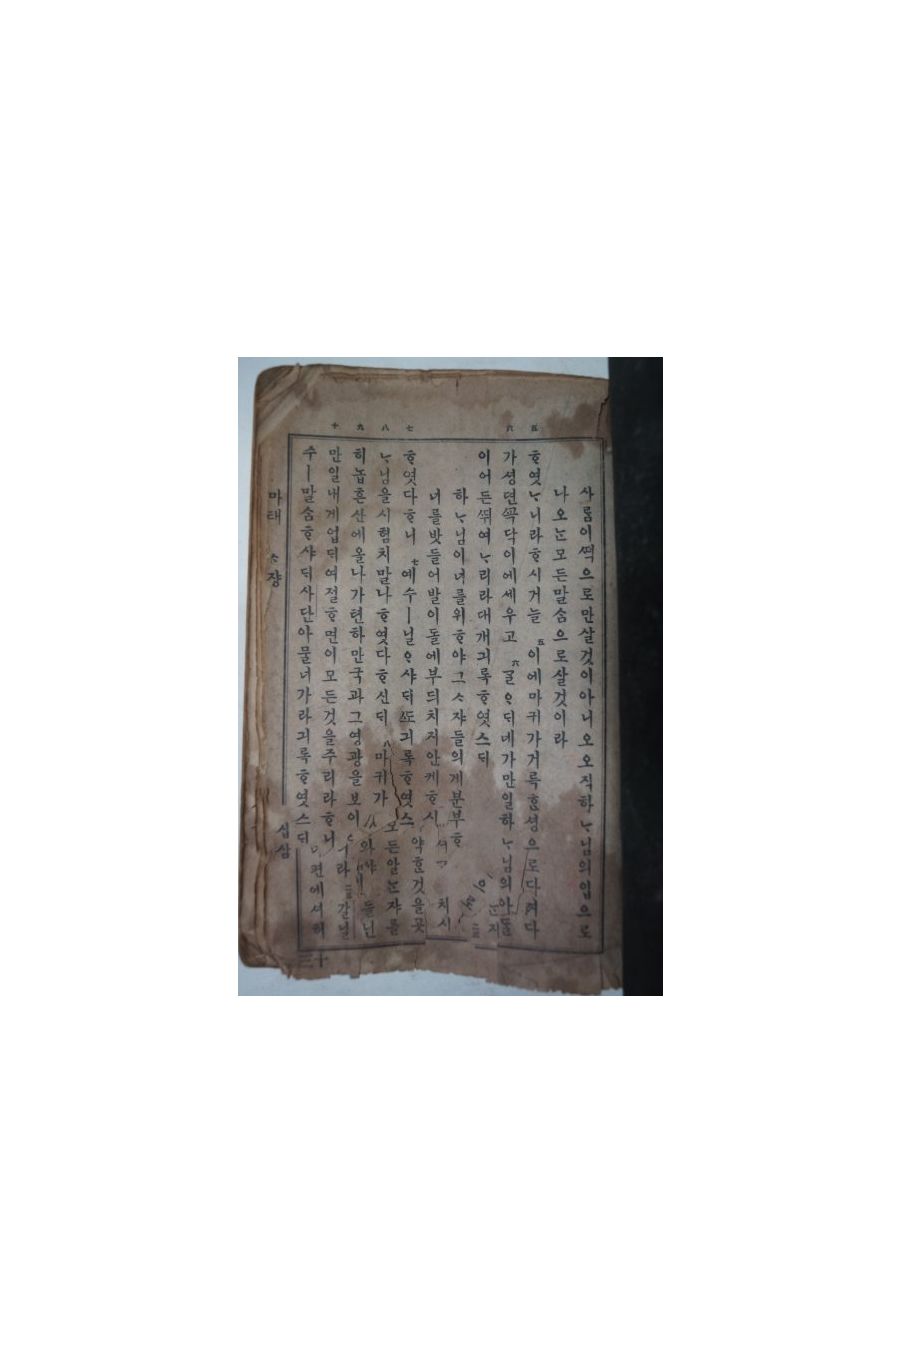 사ᄅᆞᆷ이ᄯᅥᆨ으로만살것이아니오오직하ᄂᆞ님의입으로
나오ᄂᆞᆫ모든말ᄉᆞᆷ으로살것이라
ᄒᆞ엿ᄂᆞ니라ᄒᆞ시거늘 五 이에마귀가거륵ᄒᆞᆫ셩으로다려다
가셩뎐ᄭᅩᆨ닥이에세우고 六 ᄀᆞᆯᄋᆞᄃᆡ네가만일하ᄂᆞ님의아ᄃᆞᆯ
이어든ᄯᅱ여ᄂᆞ리라대개긔록ᄒᆞ엿스ᄃᆡ
하ᄂᆞ님이너를위ᄒᆞ야그ᄉᆞ쟈들의게분부ᄒᆞ
너를밧들어발이돌에부듸치지안케ᄒᆞ시
ᄒᆞ엿다ᄒᆞ니 七 예수ㅣ닐ᄋᆞ샤ᄃᆡᄯᅩ긔록ᄒᆞ엿스
ᄂᆞ님을시험치말나ᄒᆞ엿다ᄒᆞ신ᄃᆡ 八 마귀가
히놉흔산에올나가텬하만국과그영광을보이
만일내게업ᄃᆡ여절ᄒᆞ면이모든것을주리라ᄒᆞ니
수ㅣ말ᄉᆞᆷᄒᆞ샤ᄃᆡ사단아물너가라긔록ᄒᆞ엿스ᄃᆡ
五
六
七
八
九
十
마태 ᄉᆞ쟝
십삼
十三